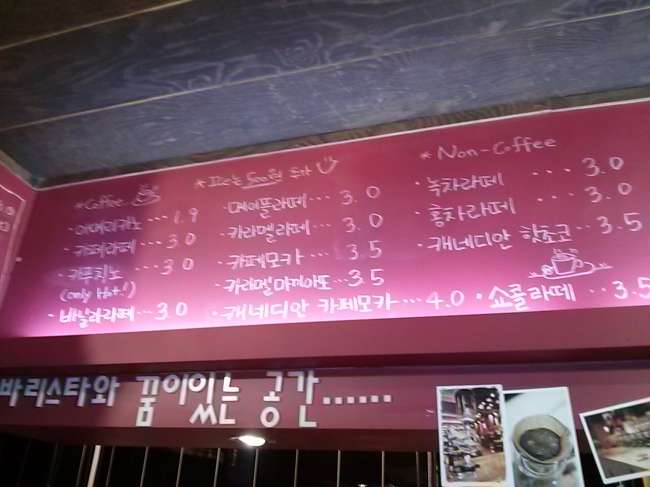 *Coffee
·아메리카노 ··· 1.9
·카페라떼 ··· 3.0
·카푸치노 ··· 3.0
(only Hot!)
·바닐라라떼 ··· 3.0
*Ice는 500원 추가
·메이플라떼 ··· 3.0
·카라멜라떼 ··· 3.0
·카페모카 ··· 3.5
·카라멜마끼아또 ··· 3.5
·캐네디안 카페모카 ··· 4.0
*Non-Coffee
·녹차라떼 ··· 3.0
·홍차라떼 ··· 3.0
·캐네디안 핫초코 ·· 3.5
·쇼콜라떼 ·· 3.5
바리스타와 꿈이있는 공간......